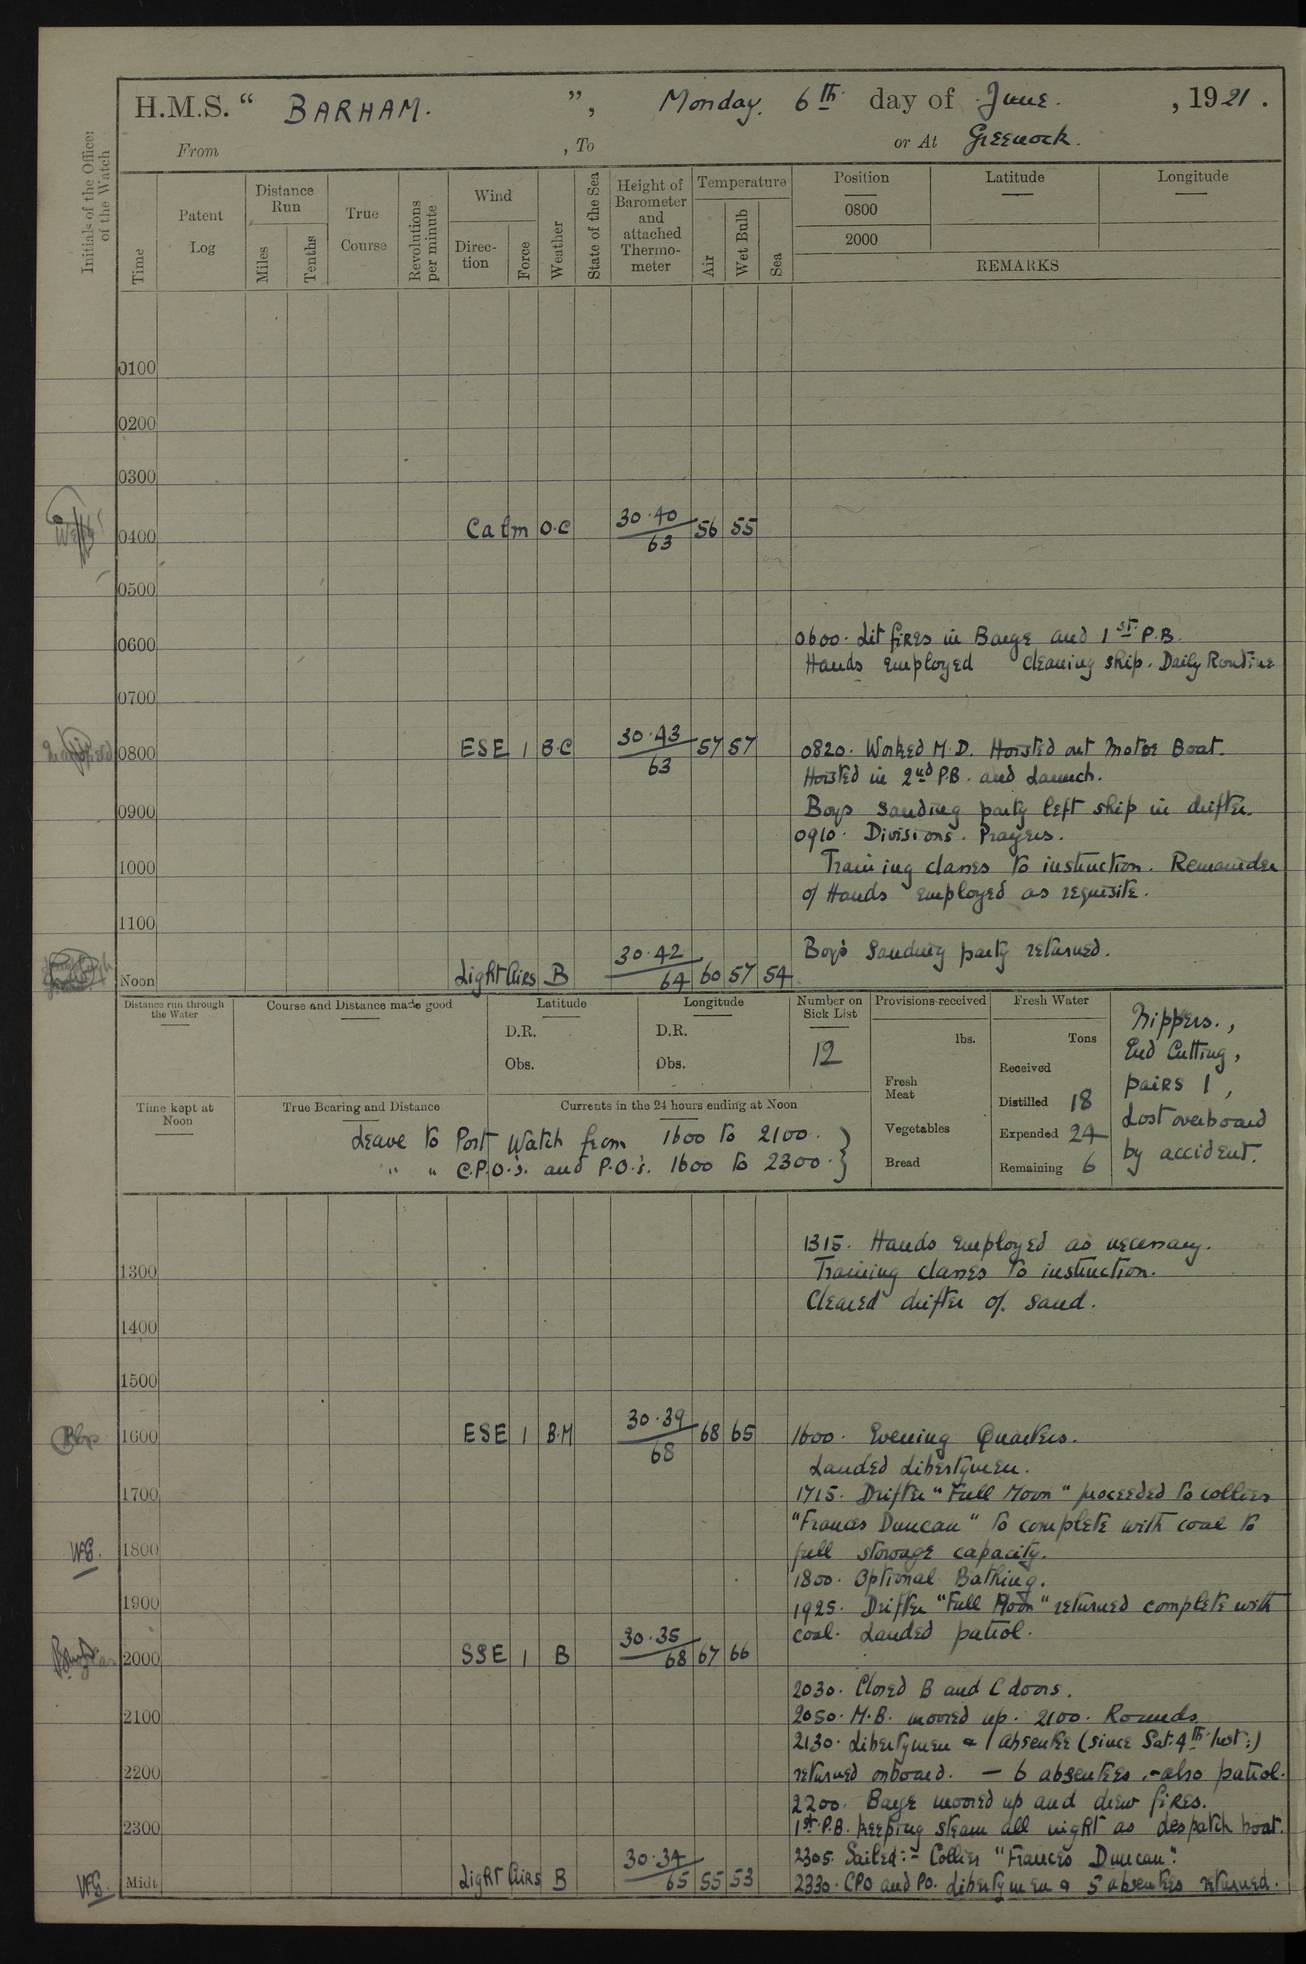 H.M.S. “ BARHAM. ”, Monday. 6th. day of June. , 1921.
From , To or At Greenock.
Initials of the Officer of the Watch
Time
Patent Log
Distance Run
Miles
Tenths
True Course
Revolutions per minute
Wind
Direc-tion
Force
Weather
State of the Sea
Height of Barometer and attached Thermo-meter
Temperature
Air
Wet Bulb
Sea
Position
Latitude
Longitude
0800
2000
REMARKS
0100
0200
0300
0400 Calm O.C 30.40/63 56 55
0500
0600. Lit fires in Barge and 1st. P.B.
0600
Hands employed cleaning ship. Daily Routine
0700
0800 ESE 1 B.C 30.43/63 57 57 0820. Worked M.D. Hoisted out Motor Boat.
Hoisted in 2nd P.B. and Launch.
0900 Boys Sanding party left ship in drifter.
0910. Divisions. Prayers.
1000 Training classes to instruction. Remainder
of Hands employed as requisite.
1100
Boys Sanding party returned.
Noon Light Airs B 30.42/64 60 57 54
Distance run through the Water
Course and Distance made good
Latitude
D.R.
Obs.
Longitude
D.R.
Obs.
Number on Sick List
12
Provisions received
lbs.
Fresh Meat
Vegetables
Bread
Fresh Water
Tons
Received
Distilled 18
Expended 24
Remaining 6
Nippers.,
End Cutting,
pairs 1,
Lost overboard
by accident.
Time kept at Noon
True Bearing and Distance
Currents in the 24 hours ending at Noon
Leave to Port Watch from 1600 to 2100.
" " C.P.O's. and P.O's. 1600 to 2300.
1315. Hands employed as necessary.
1300 Training classes to instruction.
Cleared drifter of sand.
1400
1500
1600 ESE 1 B.M 30.39/68 68 65 1600. Evening Quarters.
Landed Libertymen.
1700 1715. Drifter "Full Moon" proceeded to collier
"Frances Duncan" to complete with coal to
1800 full stowage capacity.
1800. Optional Bathing.
1900 1925. Drifter "Full Moon" returned complete with
coal. Landed patrol.
2000 SSE 1 B 30.35/68 67 66
2030. Closed B and C doors.
2100 2050. M.B. moored up. 2100. Rounds.
2130. Libertymen & 1 absentee (since Sat: 4th Inst:)
2200 returned onboard. — 6 absentees, - also patrol.
2200. Barge moored up and drew fires.
2300 1st. P.B. keeping steam all night as despatch boat.
2305. Sailed:- Collier "Frances Duncan".
Midt Light Airs B 30.34/65 55 53 2330. CPO and PO. Libertymen & 5 absentees returned.